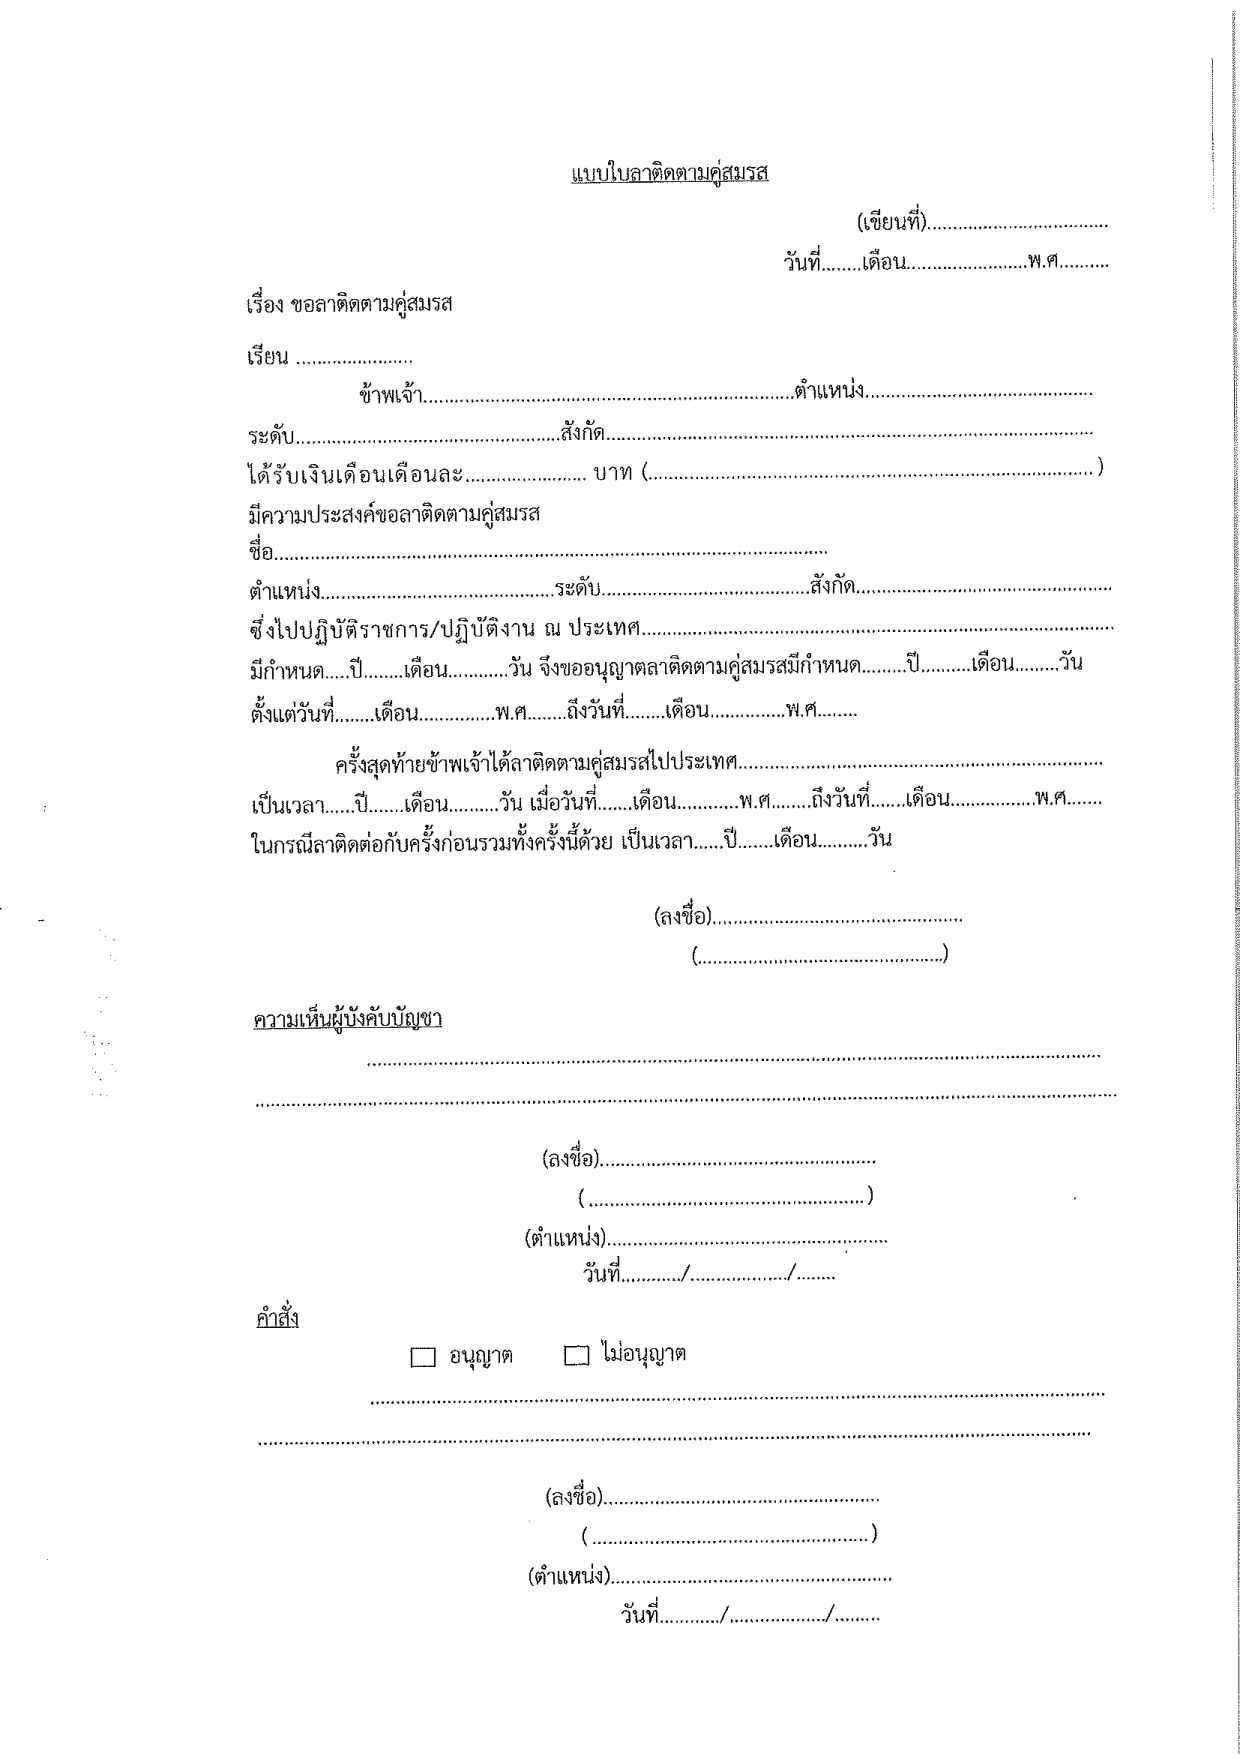 แบบใบลาติดตามคู่สมรส
(เขียนที่)...................................
วันที่........เดือน........................พ.ศ..........
เรื่อง ขอลาติดตามคู่สมรส
เรียน .......................
ข้าพเจ้า.........................................................................ตำแหน่ง.............................................
ระดับ....................................................สังกัด................................................................................................
ได้รับเงินเดือนเดือนละ........................ บาท (.......................................................................................)
มีความประสงค์ขอลาติดตามคู่สมรส
ชื่อ..............................................................................................................
ตำแหน่ง..............................................ระดับ.........................................สังกัด...................................................
ซึ่งไปปฏิบัติราชการ/ปฏิบัติงาน ณ ประเทศ..............................................................................................
มีกำหนด.....ปี........เดือน............วัน จึงขออนุญาตลาติดตามคู่สมรสมีกำหนด.........ปี..........เดือน.........วัน
ตั้งแต่วันที่........เดือน...............พ.ศ........ถึงวันที่........เดือน...............พ.ศ........
ครั้งสุดท้ายข้าพเจ้าได้ลาติดตามคู่สมรสไปประเทศ........................................................................
เป็นเวลา......ปี.......เดือน..........วัน เมื่อวันที่.......เดือน............พ.ศ........ถึงวันที่.......เดือน.................พ.ศ.......
ในกรณีลาติดต่อกับครั้งก่อนรวมทั้งครั้งนี้ด้วย เป็นเวลา......ปี.......เดือน..........วัน
(ลงชื่อ)..................................................
(.................................................)
ความเห็นผู้บังคับบัญชา
..................................................................................................................................................
............................................................................................................................................................................
(ลงชื่อ).......................................................
(.......................................................)
(ตำแหน่ง)........................................................
วันที่............/.................../........
คำสั่ง
☐ อนุญาต ☐ ไม่อนุญาต
..................................................................................................................................................
......................................................................................................................................................................
(ลงชื่อ).......................................................
(.......................................................)
(ตำแหน่ง)........................................................
วันที่............/.................../.........